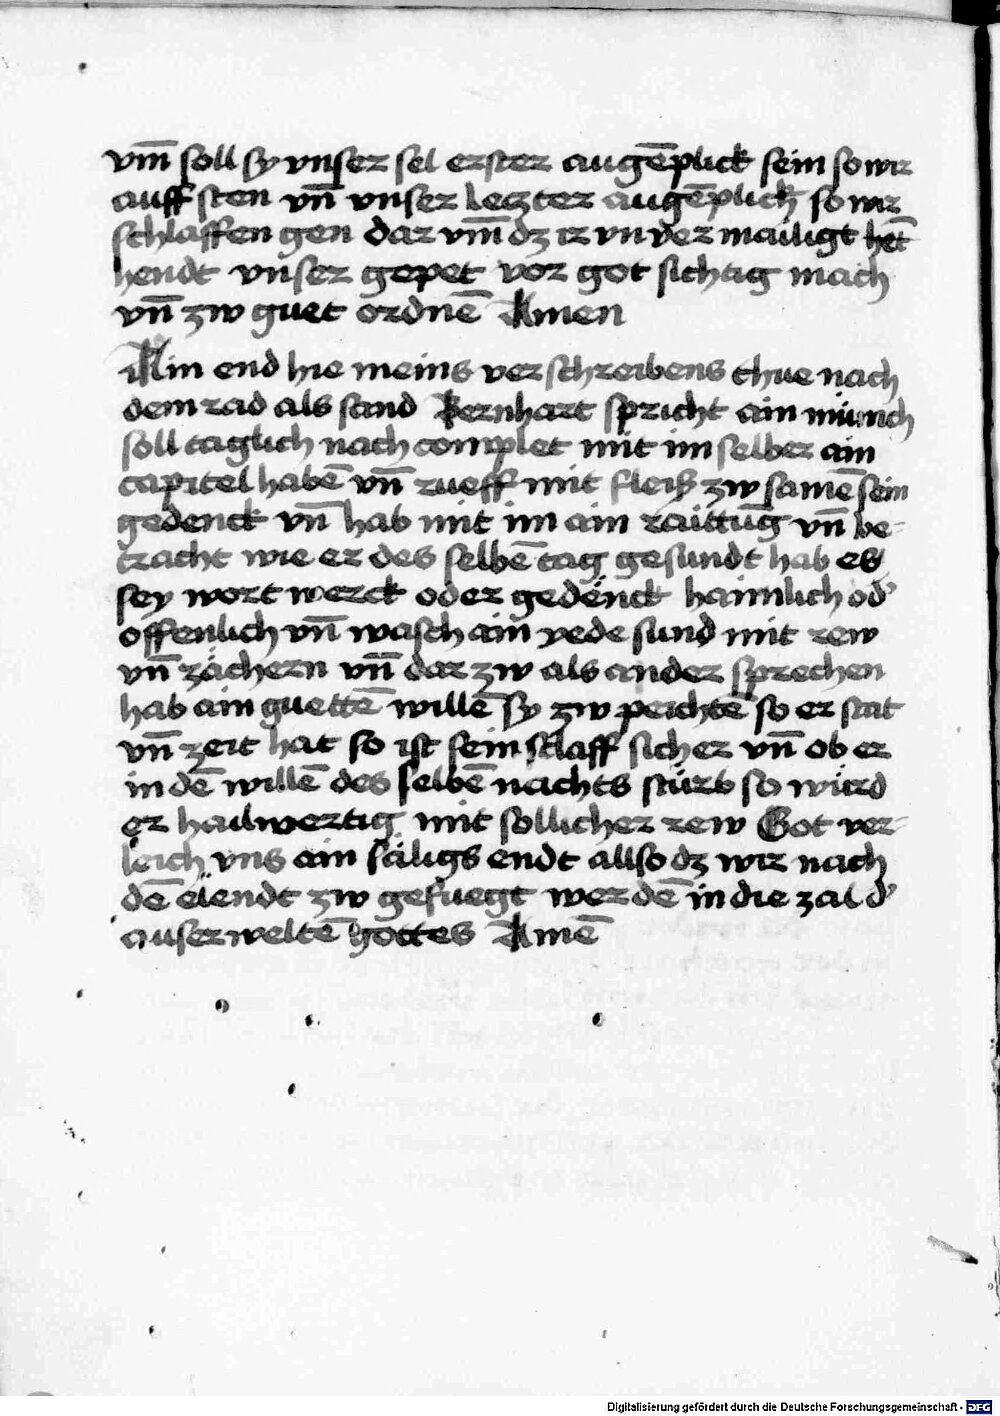 vm̄ soll sy vnser sel erster augēplick sein so wir
auff sten vn̄ vnser leczter augēplick so wir
schlaffen gen dar vm̄ dz ir vnuermailigt
hendt vnser gepet vor got sichtig mach
vn̄ zw guet ordnē Amen
Ain end hie meins verschreibens thue nach
dem rad als sand Bernhart spricht ain münich
soll taglich nach complet mit im selber ain
capitel habē vn̄ rueff mit fleiß zw samē sein
gedenck vn̄ hab mit im ain raittūg vn̄ be-
tracht wie er des selbē tag gesundt hab es
sey wort werck oder gedenck haimlich od'
offenlich vn̄ wasch ain yede sund mit rew
vn̄ zächern vn̄ dar zw als ander sprechen
hab ain guettē willē sy zw peichtē so er stat
vn̄ zeit hat so ist sein schlaff sicher vn̄ ob er
in dē willē des selbē nachts stürb so würd
er hailwertig mit sollicher rew Got ver-
leich vns ain säligs endt allso dz wir nach
dē ellendt zw gefuegt werdē in die zal d'
auserweltē gottes Amē
Digitalisierung gefördert durch die Deutsche Forschungsgemeinschaft - DFG